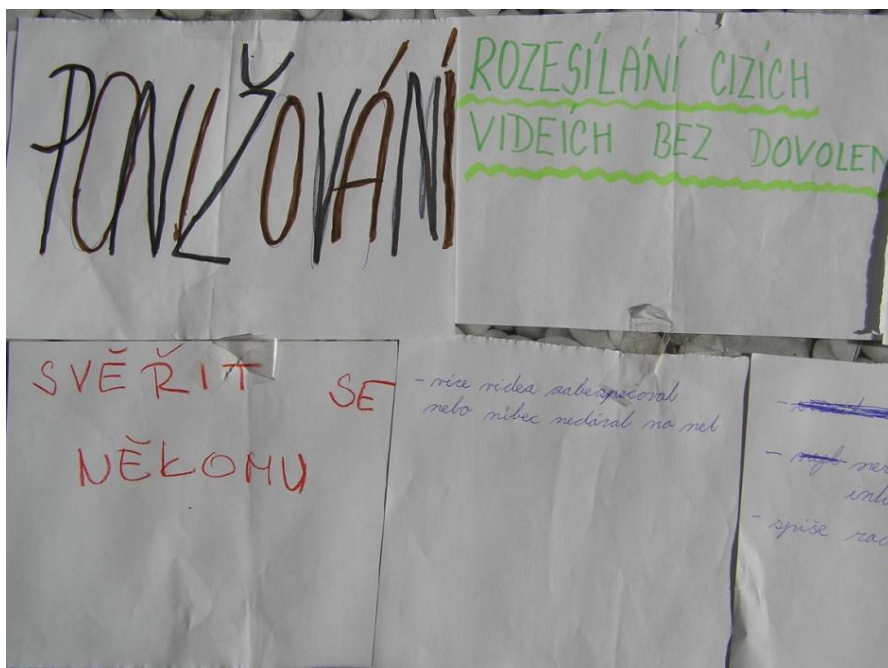 PONIŽOVÁNÍ
ROZESÍLÁNÍ CIZÍCH
VIDEÍCH BEZ DOVOLEN
SVĚŘIT SE
NĚKOMU
- více videa zabezpečoval
nebo vůbec nedával na net
-
- ner
- spíše rad